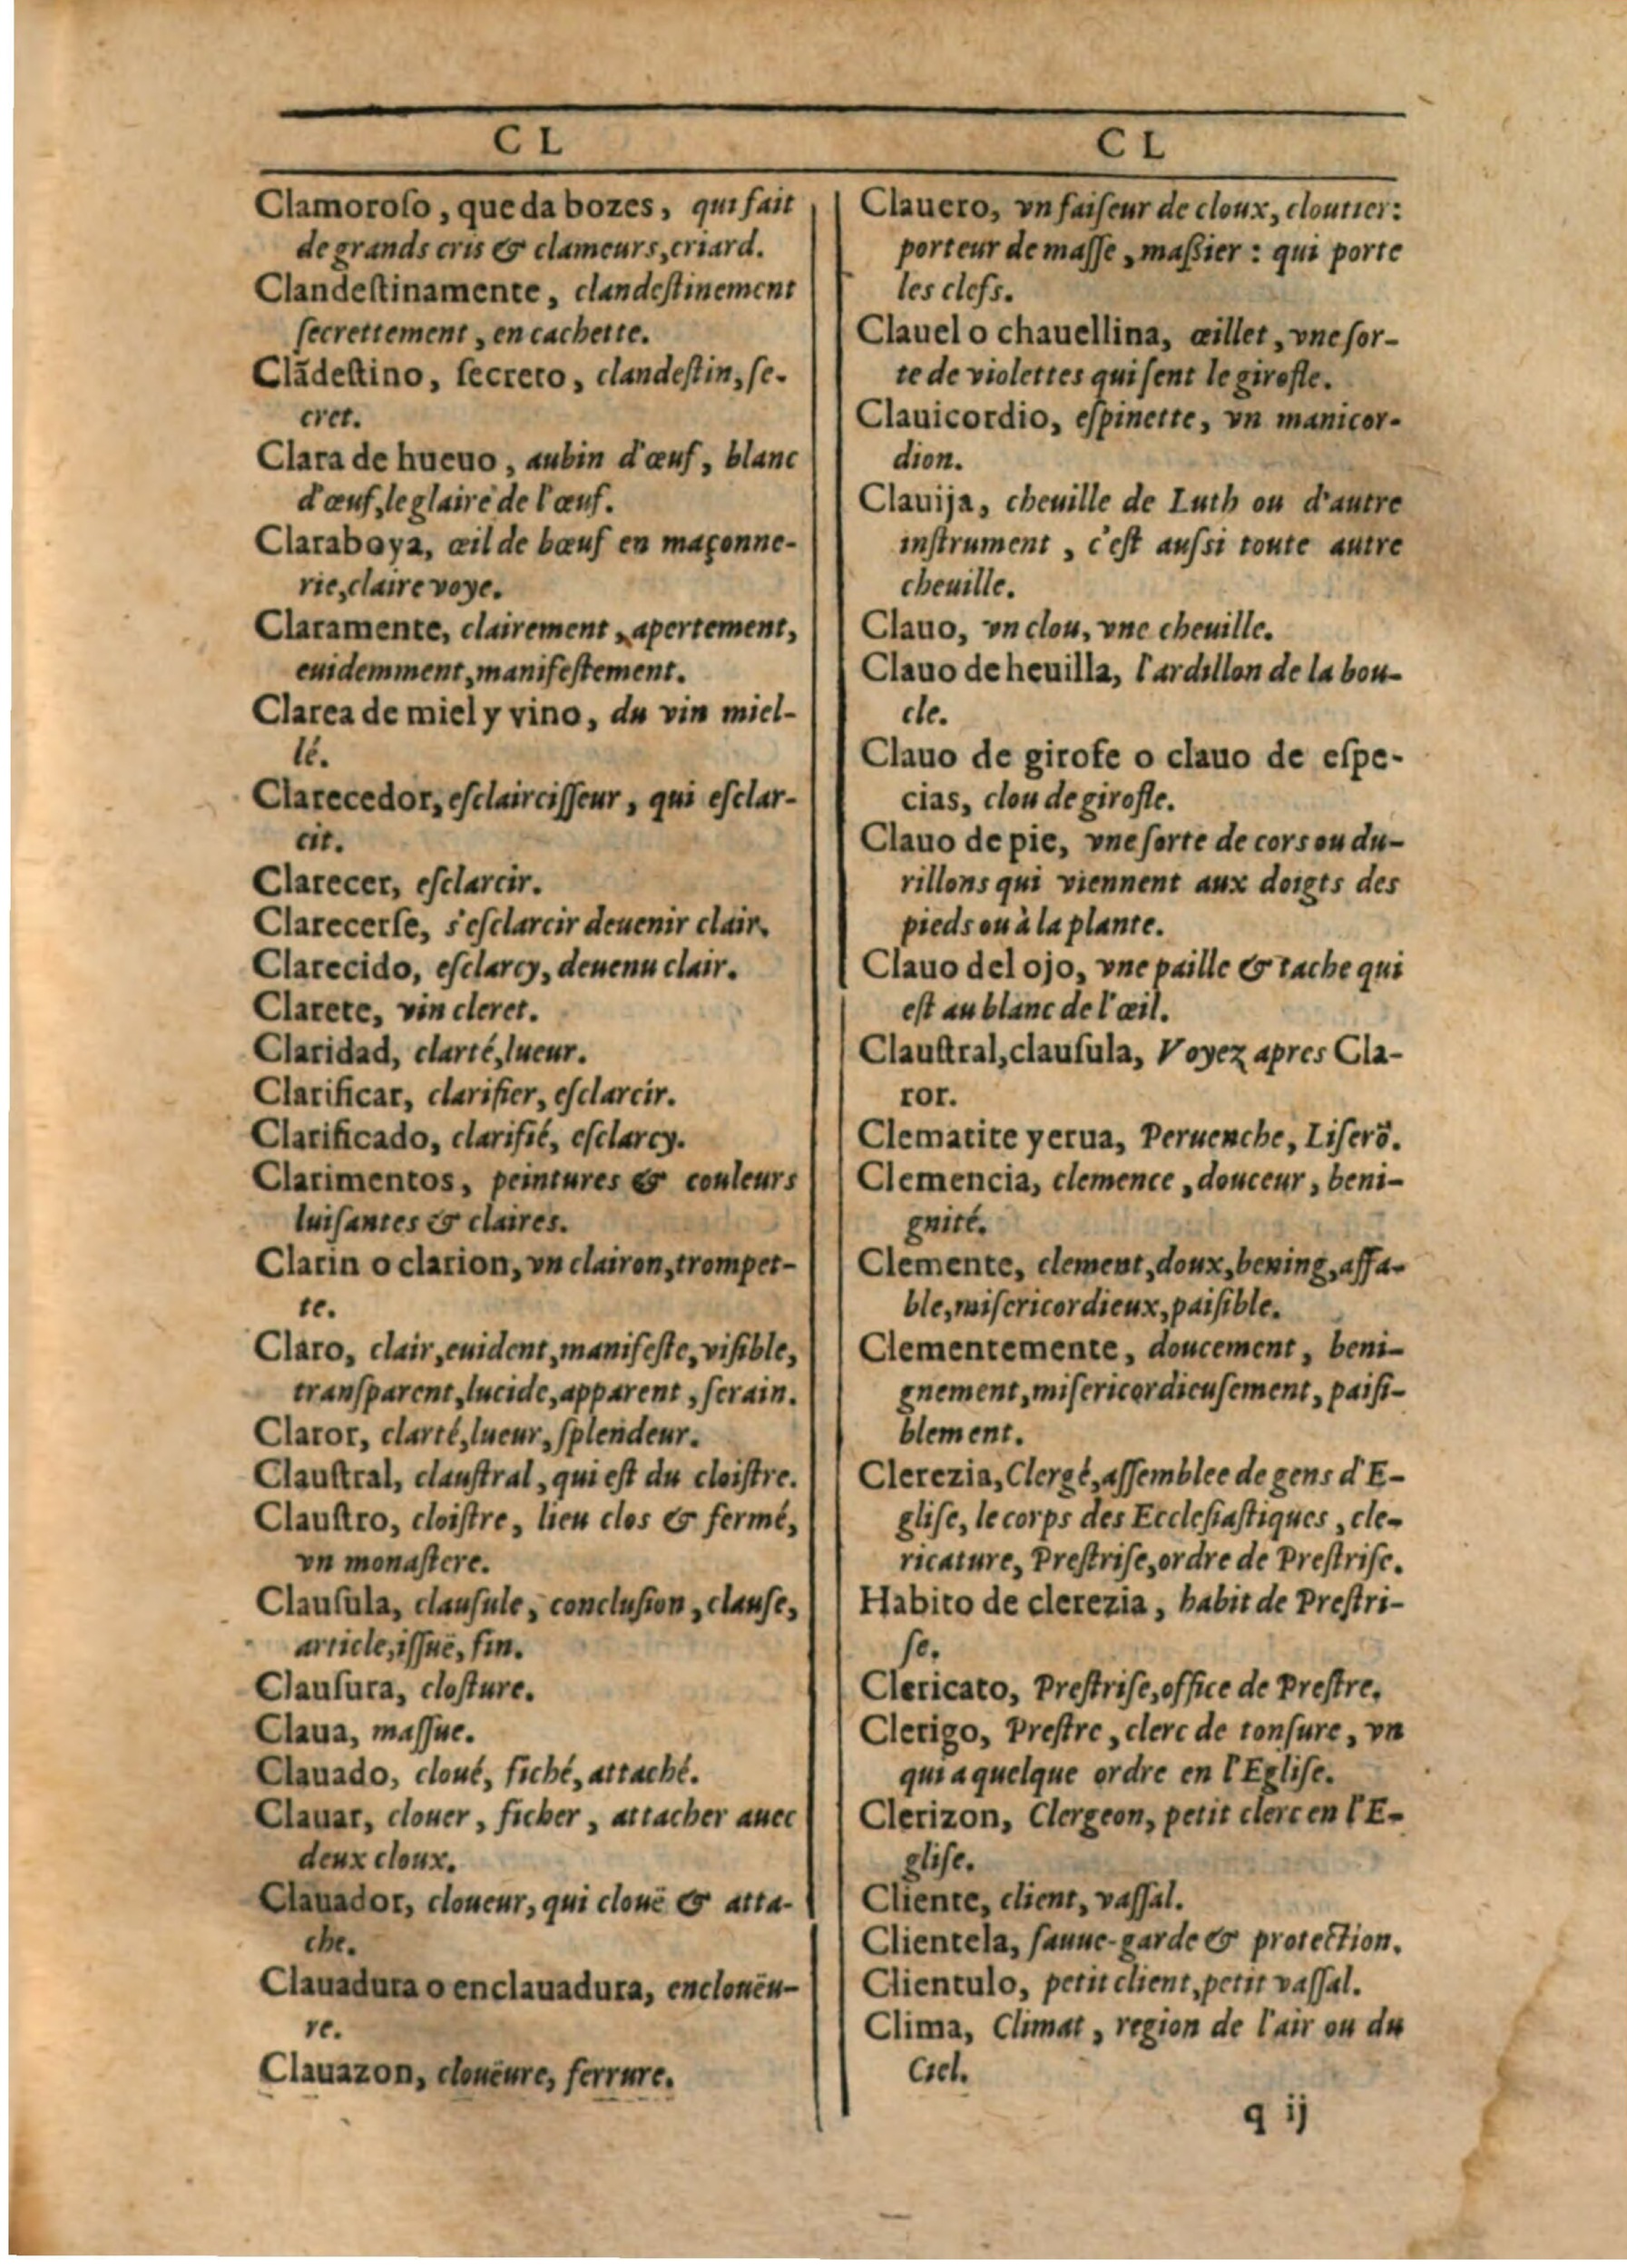 C L
Clamoroſo, que da bozes, qui fait
de grands cris & clameurs, criard.
Clandeſtinamente, clandeſtinement
ſecrettement, en cachette.
Clãdeſtino, ſecreto, clandeſtin, ſe-
cret.
Clara de hueuo, aubin d'œuf, blanc
d'œuf, le glaire de l'œuf.
Claraboya, œil de bœuf en maçonne-
rie, claire voye.
Claramente, clairement, apertement,
euidemment, manifeſtement.
Clarea de miel y vino, du vin miel-
lé.
Clarecedor, eſclairciſſeur, qui eſclar-
cit.
Clarecer, eſclarcir.
Clarecerſe, s'eſclarcir deuenir clair.
Clarecido, eſclarcy, deuenu clair.
Clarete, vin cleret.
Claridad, clarté, lueur.
Clarificar, clarifier, eſclarcir.
Clarificado, clarifié, eſclarcy.
Clarimentos, peintures & couleurs
luiſantes & claires.
Clarin o clarion, vn clairon, trompet-
te.
Claro, clair, euident, manifeſte, viſible,
tranſparent, lucide, apparent, ſerain.
Claror, clarté, lueur, ſplendeur.
Clauſtral, clauſtral, qui eſt du cloiſtre.
Clauſtro, cloiſtre, lieu clos & fermé,
vn monaſtere.
Clauſula, clauſule, concluſion, clauſe,
article, iſſuë, fin.
Clauſura, cloſture.
Claua, maſſue.
Clauado, cloué, fiché, attaché.
Clauar, clouer, ficher, attacher auec
deux cloux.
Clauador, cloueur, qui clouë & atta-
che.
Clauadura o enclauadura, enclouëu-
re.
Clauazon, clouëure, ferrure.
C L
Clauero, vn faiſeur de cloux, cloutier:
porteur de maſſe, maſsier: qui porte
les clefs.
Clauel o chauellina, œillet, vne ſor-
te de violettes qui ſent le girofle.
Clauicordio, eſpinette, vn manicor-
dion.
Clauija, cheuille de Luth ou d'autre
inſtrument, c'eſt auſsi toute autre
cheuille.
Clauo, vn clou, vne cheuille.
Clauo de heuilla, l'ardillon de la bou-
cle.
Clauo de girofe o clauo de eſpe-
cias, clou de girofle.
Clauo de pie, vne ſorte de cors ou du-
rillons qui viennent aux doigts des
pieds ou à la plante.
Clauo del ojo, vne paille & tache qui
eſt au blanc de l'œil.
Clauſtral, clauſula, Voyez apres Cla-
ror.
Clematite yerua, Peruenche, Liſerõ.
Clemencia, clemence, douceur, beni-
gnité.
Clemente, clement, doux, bening, affa-
ble, miſericordieux, paiſible.
Clementemente, doucement, beni-
gnement, miſericordieuſement, paiſi-
blement.
Clerezia, Clergé, aſſemblee de gens d'E-
gliſe, le corps des Eccleſiaſtiques, cle-
ricature, Preſtriſe, ordre de Preſtriſe.
Habito de clerezia, habit de Preſtri-
ſe.
Clericato, Preſtriſe, office de Preſtre.
Clerigo, Preſtre, clerc de tonſure, vn
qui a quelque ordre en l'Egliſe.
Clerizon, Clergeon, petit clerc en l'E-
gliſe.
Cliente, client, vaſſal.
Clientela, ſauue-garde & protection.
Clientulo, petit client, petit vaſſal.
Clima, Climat, region de l'air ou du
Ciel.
q ij